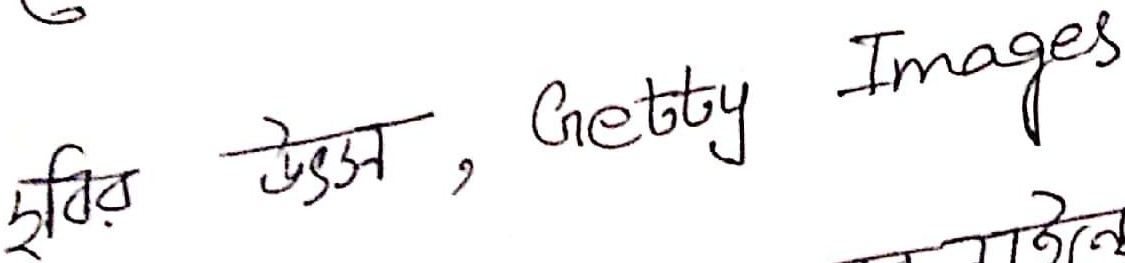 ছবির উৎস, Getty Images